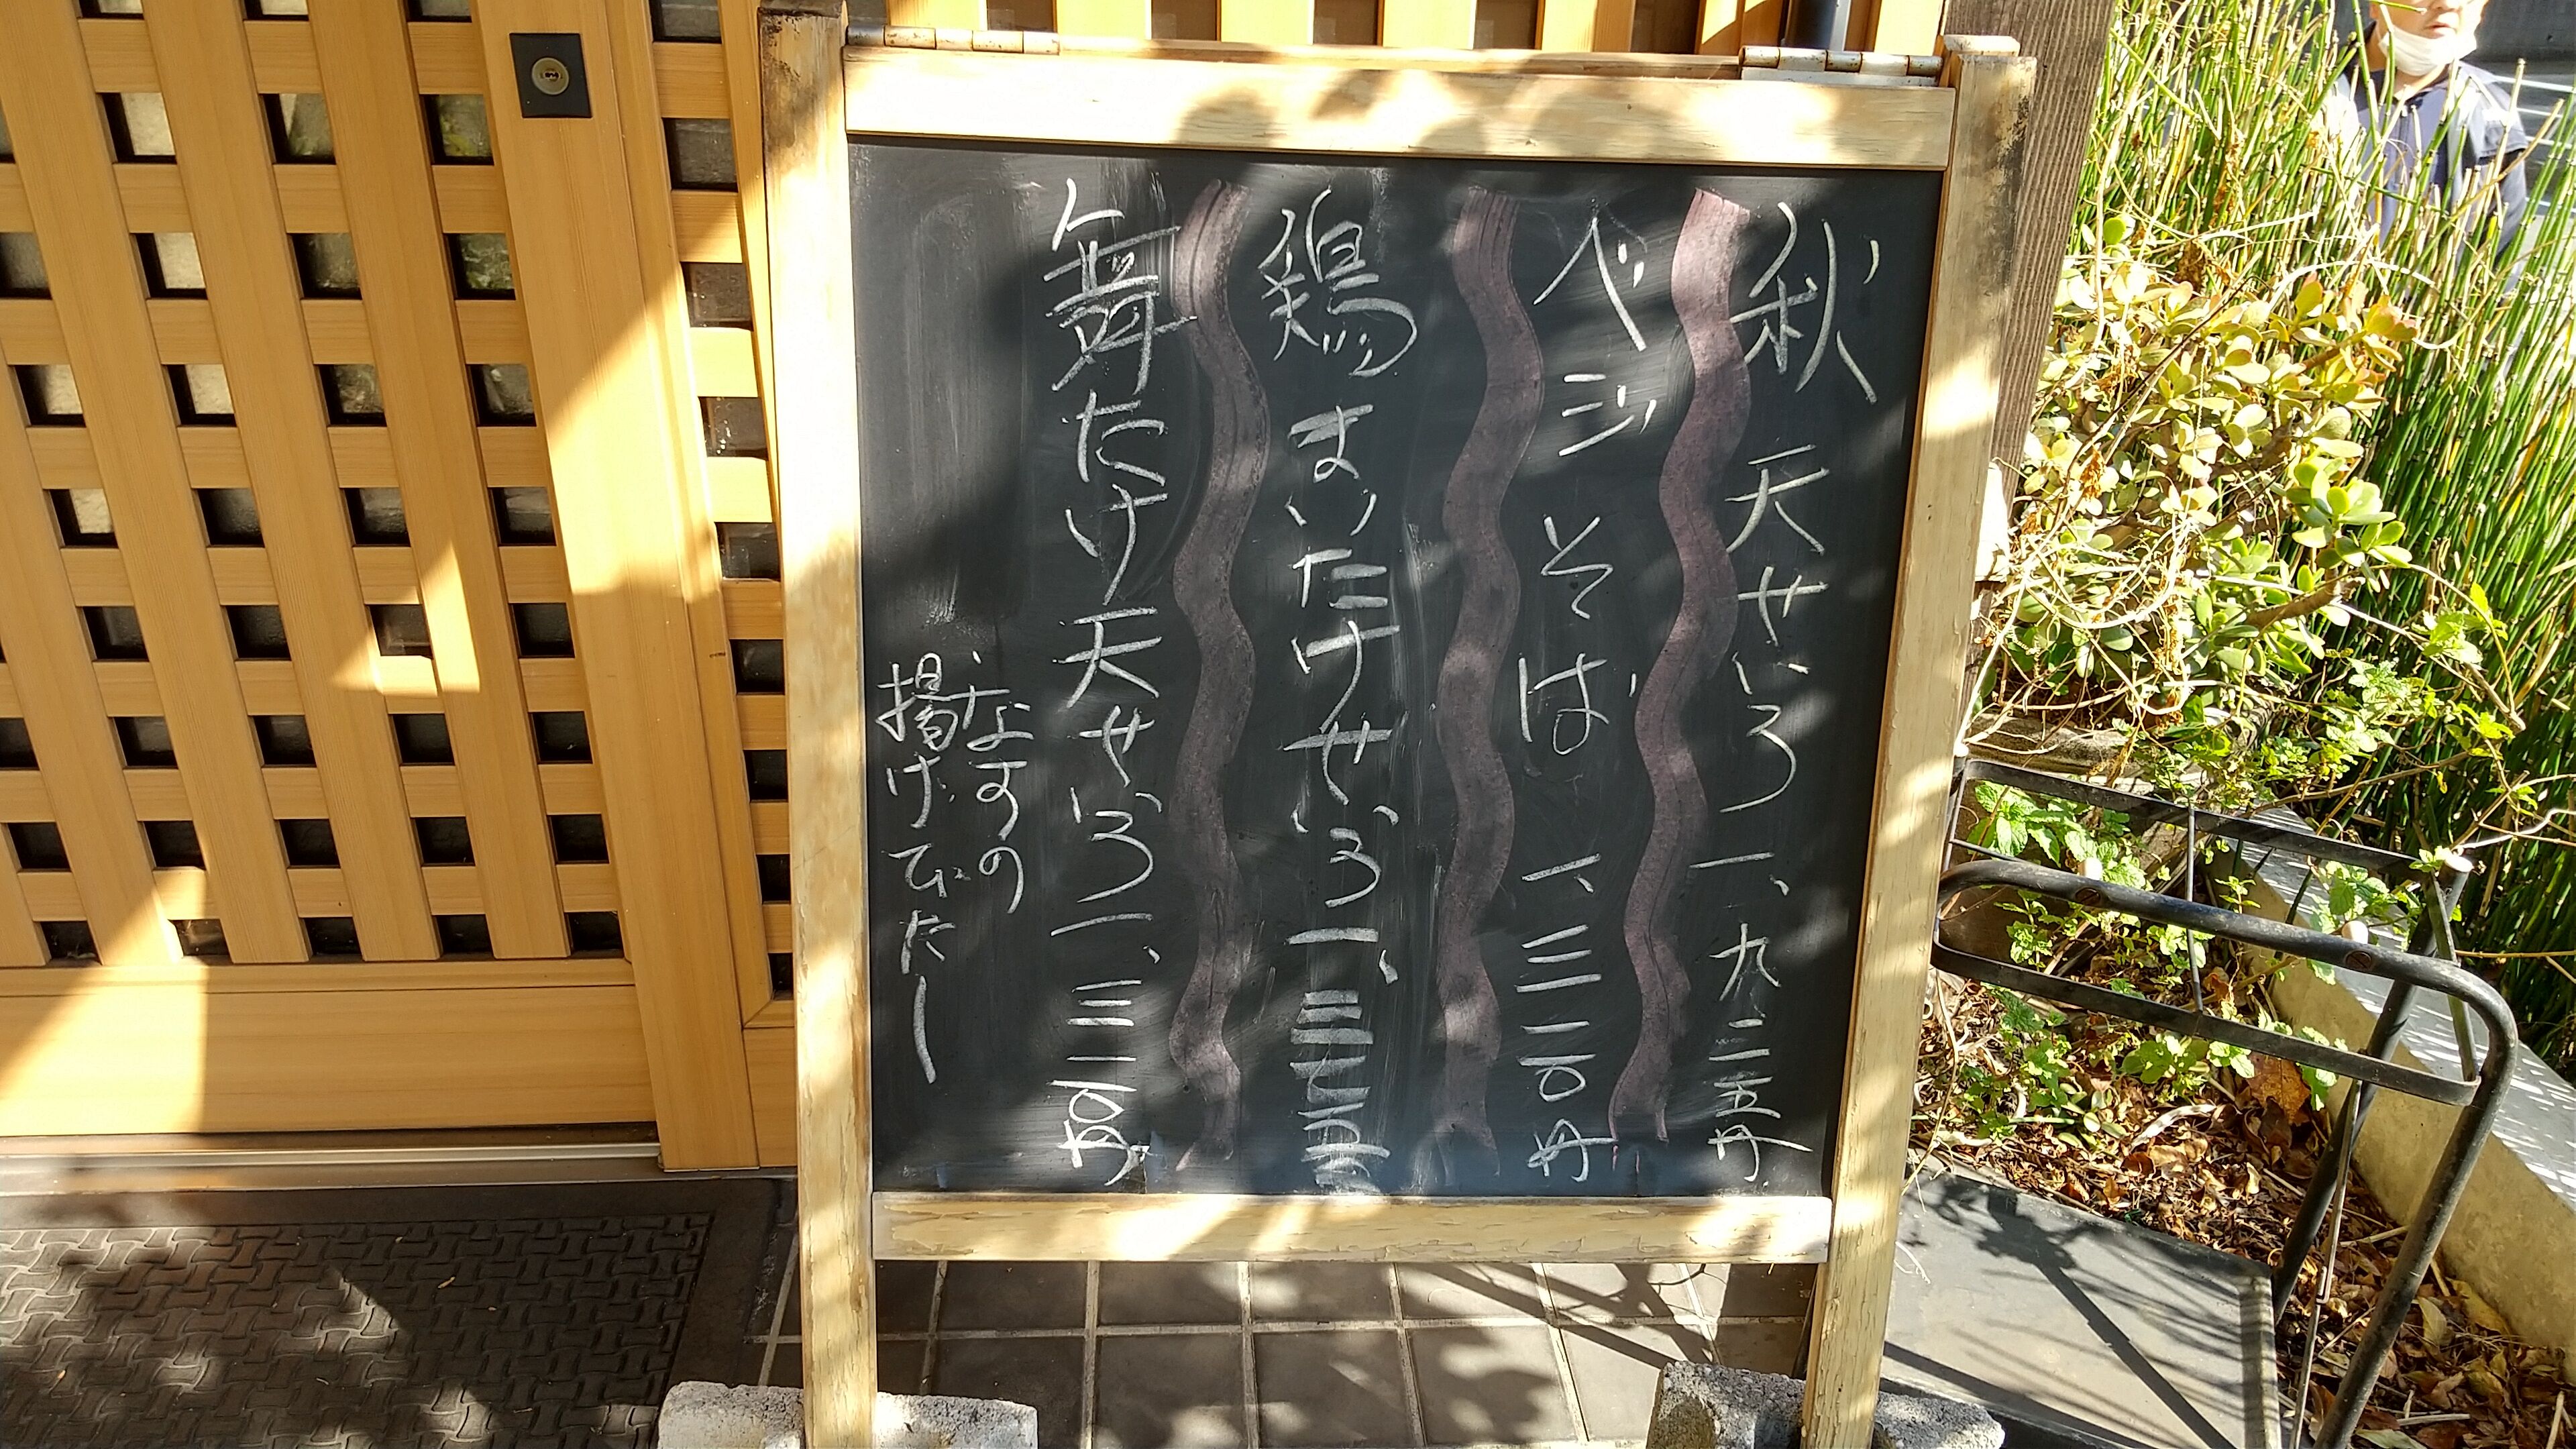 秋天せいろ一、九二五円
ベジそば一、三二〇円
鶏まいたけせいろ一、三二〇円
舞たけ天せいろ一、三二〇円
・なすの
揚げびたし